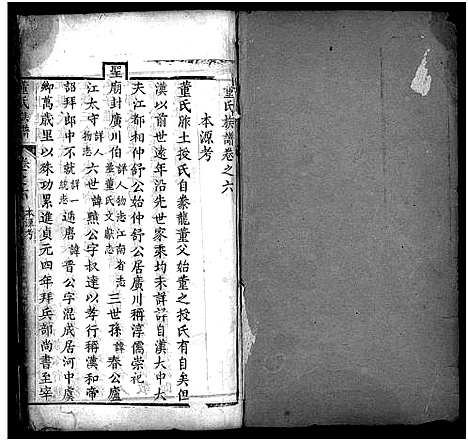 董氏族譜卷之六
本源考
董氏胙土授氏自豢龍董父始董之授氏有自矣但
漢以前世遠年沿先世家乘均未詳詳自漢大中大
夫江都相仲舒公始仲舒公居廣川稱淳儒崇祀
聖廟封廣川伯詳人物志江南省志並董氏文獻志三世孫諱春公廬
江太守詳人物志六世諱黯公字叔達以孝行稱漢和帝
詔拜郎中不就詳一統志遞唐諱晋公字混成居河中虞
鄉萬歲里以殊功累進貞元四年拜兵部尚書至宰
董氏族譜
卷之六
本源考